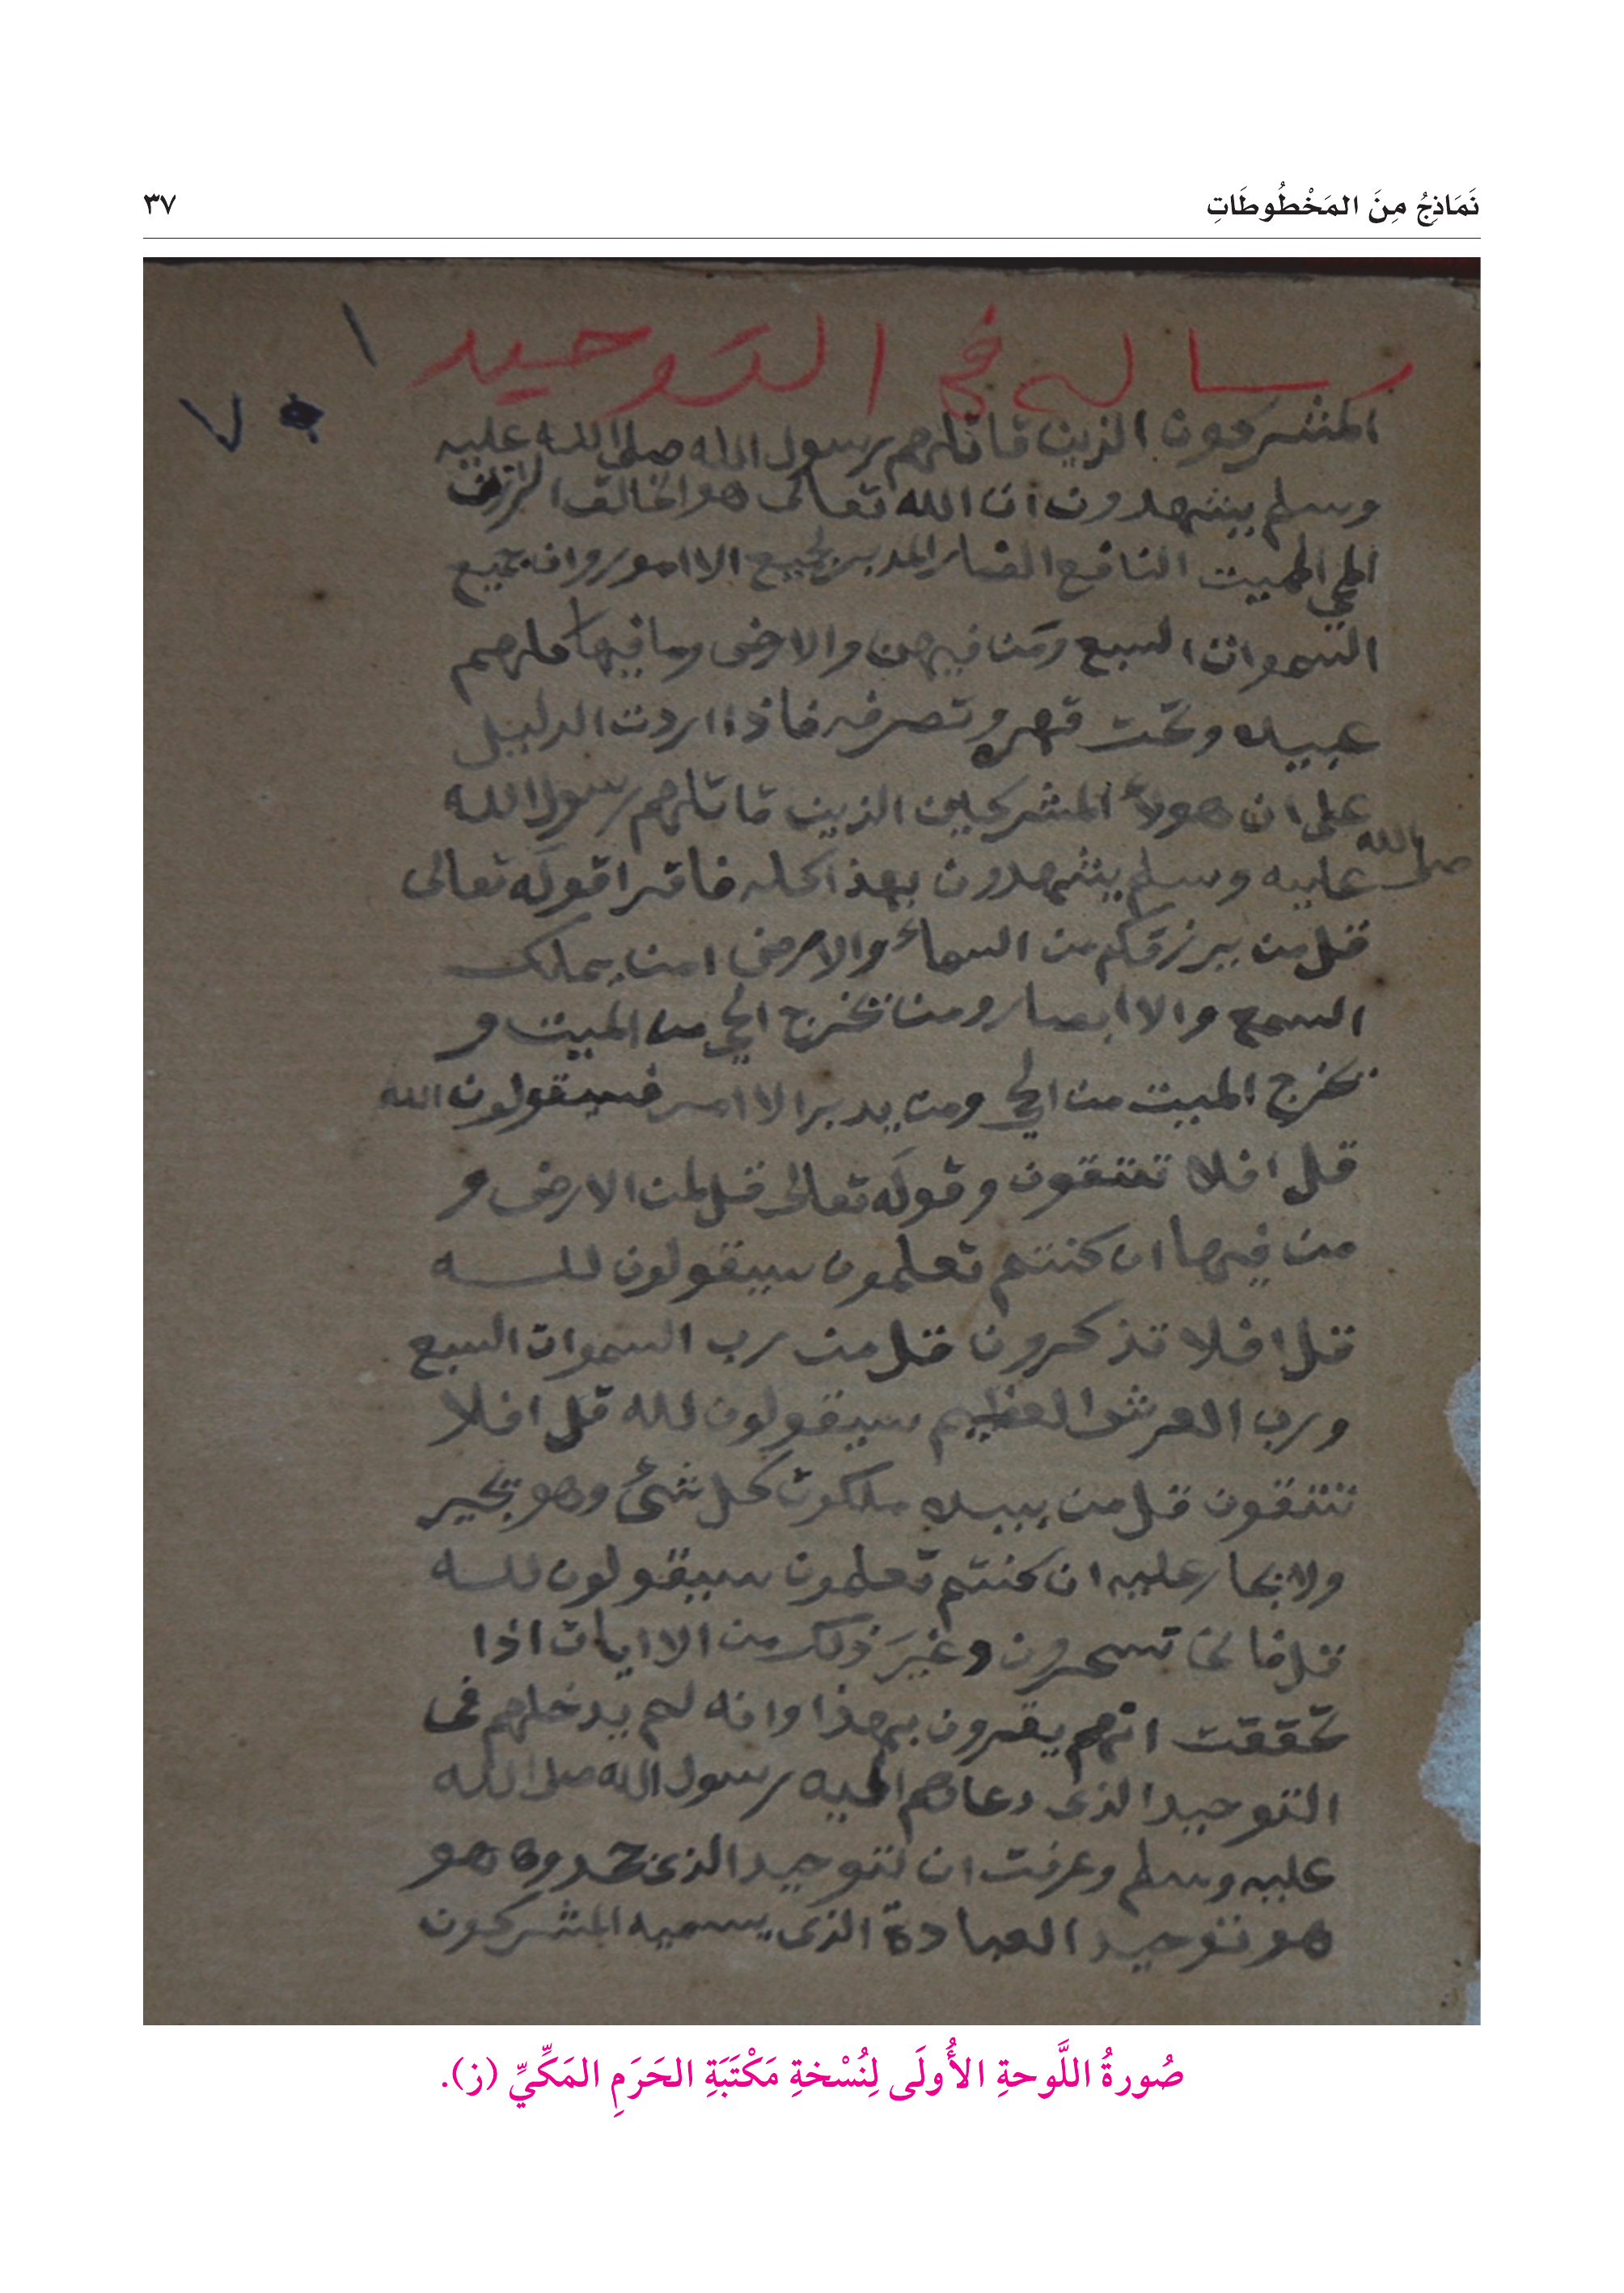 نَمَاذِجُ مِنَ المَخْطُوطَاتِ
٣٧
رساله في التوحيد
١
٧
المشركون الذين قاتلهم رسول الله صلى الله عليه
وسلم يشهدون ان الله تعالى هو الخالق الرزق
المحي المميت النافع الضار المدبر لجميع الاامور وان جميع
السموات السبع ومن فيهن والارض وما فيها كلهم
عبيده وتحت قهره وتصرفه فاذا اردت الدليل
على ان هولاء المشركين الذين قاتلهم رسول الله
صلى الله عليه وسلم يشهدون بهذا كله فاقرا قوله تعالى
قل من يرزقكم من السماء والارض امن يملك
السمع والاابصار ومن يخرج الحي من الميت و
يخرج الميت من الحي ومن يدبر الاامر فسيقولون الله
قل افلا تتقون وقوله تعالى قل لمن الارض و
من فيها ان كنتم تعلمون سيقولون لله
قل افلا تذكرون قل من رب السموات السبع
ورب العرش العظيم سيقولون لله قل افلا
تتقون قل من بيده ملكوت كل شئ وهو يجير
ولا يجار عليه ان كنتم تعلمون سيقولون لله
قل فانى تسحرون وغيرَ ذلك من الاايات اذا
تحققت انهم يقرون بهذا وانه لم يدخلهم في
التوحيد الذى دعاهم اليه رسول الله صلى الله
عليه وسلم وعرفت ان لتوحيد الذى جحدوه هو
هو توحيد العبادة الذى يسميه المشركون
صُورةُ اللَّوحةِ الأُولَى لِنُسْخةِ مَكْتَبَةِ الحَرَمِ المَكِّيِّ (ز).